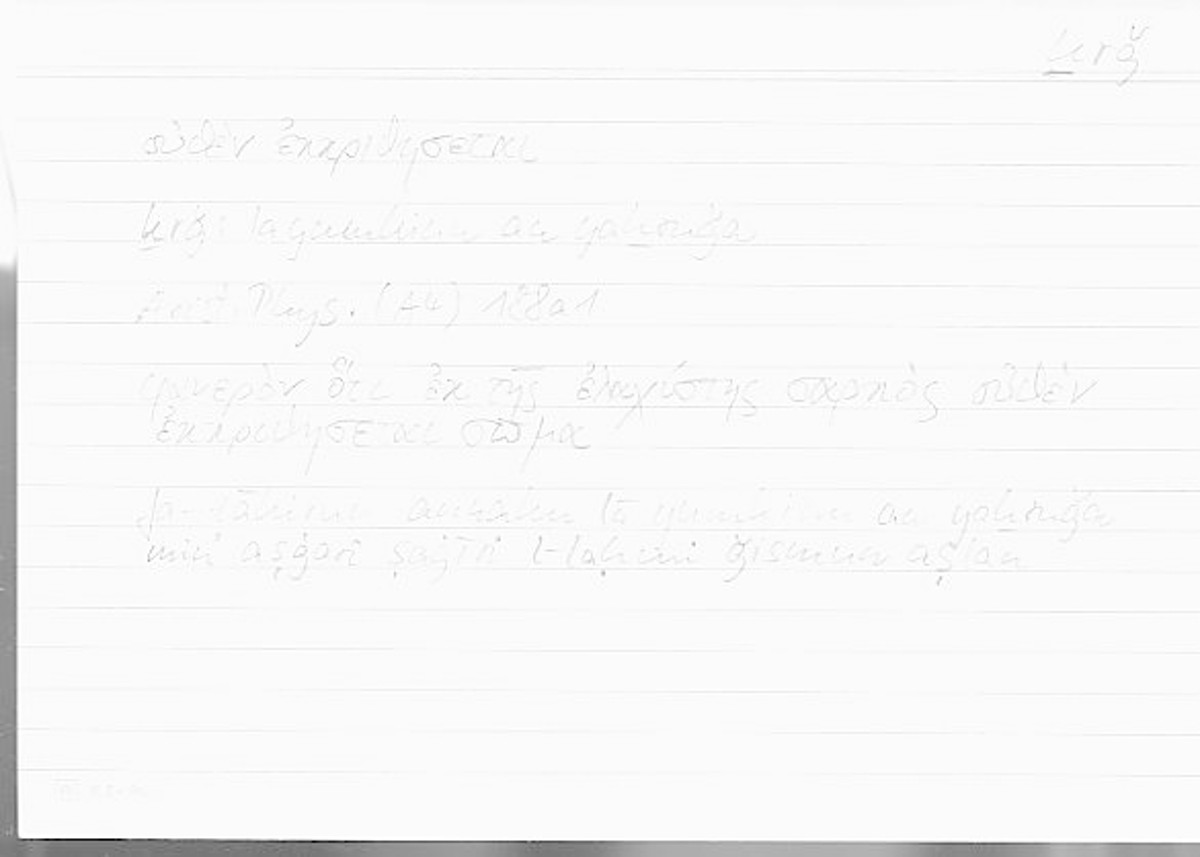 ḫrǧ
οὐθὲν ἐκκριθήσεται
ḫrǧ: la yumkinu an yaḫruǧa
Arist. Phys. (A4) 188a1
φανερὸν ὅτι ἐκ τῆς ἐλαχίστης σαρκὸς οὐθὲν
ἐκκριθήσεται σῶμα
annahu lā yumkinu an yaḫruǧa
min aṣġari ṣaġīri l-laḥmi ǧismun aṣlan